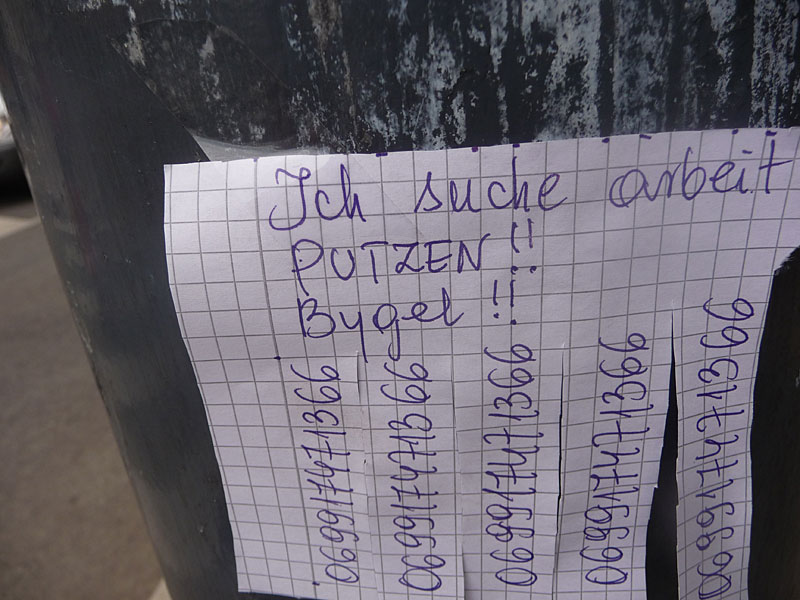 Ich suche arbeit
PUTZEN !!
Bygel !!
069917471366
069917471366
069917471366
069917471366
069917471366